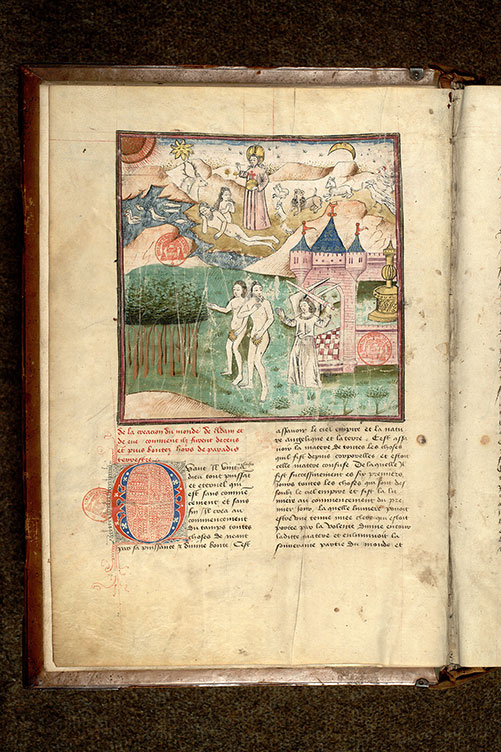 de la creacion du monde de Adam et
de eve comment ilz furent deceus
et puis boutez hors de paradis
terrestre
Quant Il
dieu tout puissant
et eternel qui
est sans comme
cement et sans
fin Il crea au
commencement
du tamps toutes
choses de neant
par sa puissance et divine bonte Cest
assavoir le ciel empire et la natu
re angelique et la terre Cest assa
voir la matere de toutes les choses
quil fist depuis corporelles et estoit
celle matere confuse De laquelle il
fist successivement es six premiers
jours toutes les choses qui sont des
soubz le ciel empire et fist la lu
miere au commencement du pre
mier jour la quelle lumiere
estre une clere qui estoit
portee par la volente divine entour
ladite matere et enluminoit la
souveraine partie du monde et